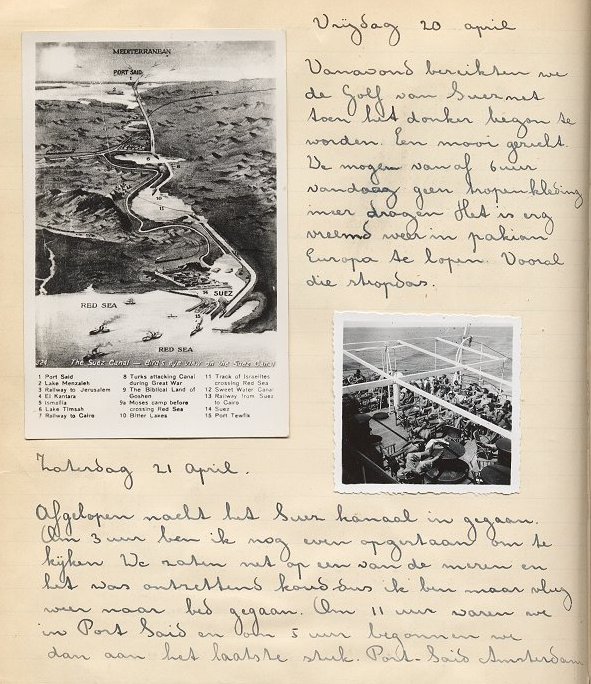 Vrijdag 20 april
Vanavond bereikten we
de Golf van Suez net
toen het donker begon te
worden. Een mooi gezicht.
We mogen vanaf 6 uur
vandaag geen tropenkleding
meer dragen Het is erg
vreemd weer in pakian
Europa te lopen. Vooral
die stropdas.
MEDITERRANEAN
PORT SAID
1
10
11
SUEZ
14
15
RED SEA
RED SEA
324 The Suez Canal — Bird's eye view on the Suez Canal
1 Port Said
2 Lake Menzaleh
3 Railway to Jerusalem
4 El Kantara
5 Ismailia
6 Lake Timsah
7 Railway to Cairo
8 Turks attacking Canal
during Great War
9 The Biblical Land of
Goshen
9a Moses camp before
crossing Red Sea
10 Bitter Lakes
11 Track of Israelites
crossing Red Sea
12 Sweet Water Canal
13 Railway from Suez
to Cairo
14 Suez
15 Port Tewfik
Zaterdag 21 April.
Afgelopen nacht het Suez kanaal in gegaan.
Om 3 uur ben ik nog even opgestaan om te
kijken We zaten net op een van de meren en
het was ontzettend koud dus ik ben maar vlug
weer naar bed gegaan. Om 11 uur waren we
in Port Said en om 5 uur begonnen we
dan aan het laatste stuk. Port-Said Amsterdam